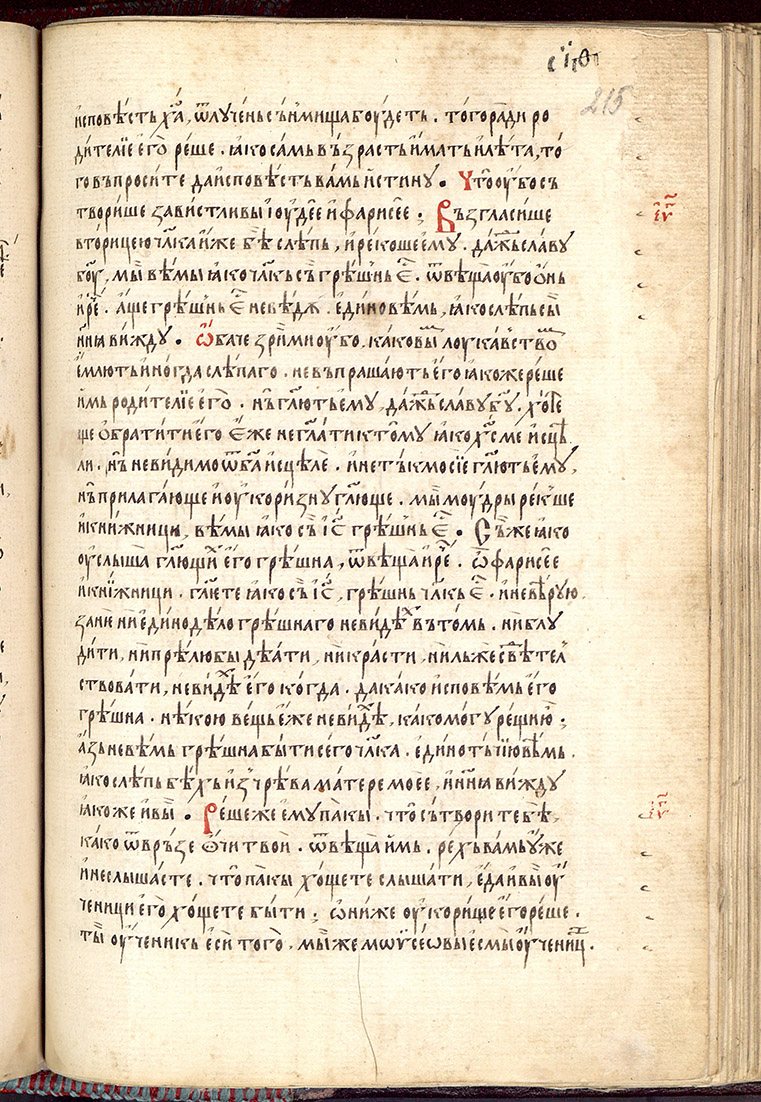 с҃іѳ
215
исповѣсть х҃а, ѿлученьсъньмища боудеть. того ради ро
дителіе его рѣше. ꙗко самь възрасть имать и лѣта, то
го въпросите да исповѣсть вамь истину. Что оубо съ
творише завистливы іоудее и фарисее; Възгласише
вторицею чл҃ка иже бѣ слѣпь, и рекоше ему. даждь славу
боу, мы вѣмы ꙗко чл҃кь съ грѣшнь е҃. ѿвѣща оубо онь
и реч҃. аще грѣшнь е҃ не вѣдѣ. едино вѣмь, ꙗко слѣпь сы
нн҃ꙗ вижду. Ѡбаче зримь оубо. каковы лоукавство
емлють иногда слѣпаго. не въпрашають его ꙗкоже рѣше
имь родителіе его. нь гл҃ють ему, даждь славу б҃у. хоте
ще обратити его еже не гл҃ати к тому ꙗко х҃с ме исцѣ
ли. нь невидимо ѿ б҃а исцѣле. и не тькмо сіе гл҃ють ему,
нь прилагающе и оукоризну гл҃юще. мы моудры рекуще
и книжници, вѣмы ꙗко съ і҃с грѣшнь е҃. Съ же ꙗко
оуслыша гл҃ющих его грѣшна, ѿвѣща и реч҃. ѡ фарисее
и книжници. гл҃ете ꙗко съ і҃с, грѣшнь чл҃кь е҃. и не вѣрую.
зане ни едино дѣло грѣшнаго не видѣх въ томь. ни блу
дити, ни прѣлюбы дѣати, ни красти, ни льжесвѣтел
ствовати, не видѣх его когда. да како исповѣмь его
грѣшна. нѣкою вещь еже не видѣх, како могу рещи ю;
азь не вѣмь грѣшна быти сего чл҃ка. едино тьчію вѣмь.
ꙗко слѣпь бѣхь из чрѣва матере моее, и нн҃ꙗ вижду
ꙗкоже и вы. Рѣше же ему пакы. что сътвори тебѣ,
како ѿврьзе очи твои. ѿвѣща имь. рехь вамь оуже
и не слышасте. что пакы хощете слышати, еда и вы оу
ченици его хощете быти; ѡни же оукорише его рѣше.
ты оученикь еси того, мы же мѡѵсеѡвы есмы оученици.